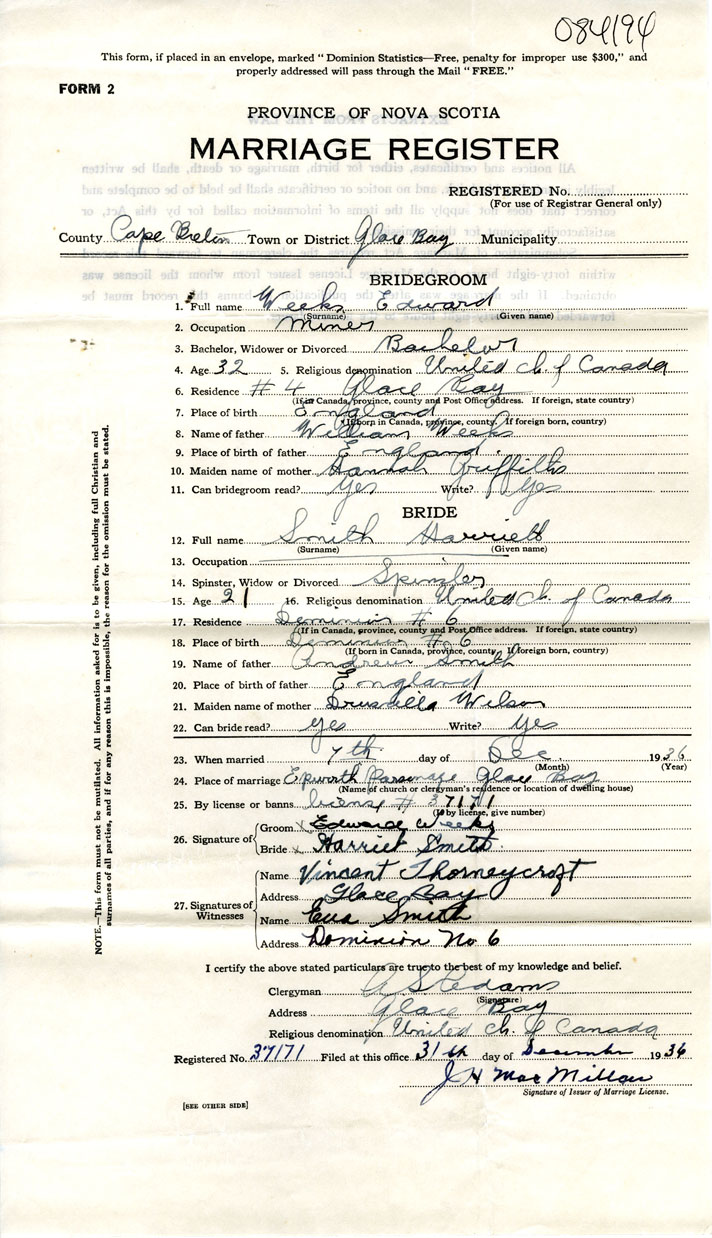 084194
This form, if placed in an envelope, marked "Dominion Statistics—Free, penalty for improper use $300," and
properly addressed will pass through the Mail "FREE."
FORM 2
PROVINCE OF NOVA SCOTIA
MARRIAGE REGISTER
REGISTERED No.
(For use of Registrar General only)
County Cape Breton Town or District Glace Bay Municipality
BRIDEGROOM
1. Full name Weeks Edward
(Surname) (Given name)
2. Occupation Miner
3. Bachelor, Widower or Divorced Bachelor
4. Age 32 5. Religious denomination United Ch. of Canada
6. Residence # 4 Glace Bay
(If in Canada, province, county and Post Office address. If foreign, state country)
7. Place of birth England
(If born in Canada, province, county. If foreign born, country)
8. Name of father William Weeks
9. Place of birth of father England.
10. Maiden name of mother Hannah Griffiths
11. Can bridegroom read? Yes Write? Yes
BRIDE
12. Full name Smith Harriett
(Surname) (Given name)
13. Occupation
14. Spinster, Widow or Divorced Spinster
15. Age 21 16. Religious denomination United Ch. of Canada
17. Residence Dominion # 6
(If in Canada, province, county and Post Office address. If foreign, state country)
18. Place of birth Dominion # 6
(If born in Canada, province, county. If foreign born, country)
19. Name of father Andrew Smith
20. Place of birth of father England
21. Maiden name of mother Drusilla Wilson
22. Can bride read? Yes Write? Yes
23. When married 7th day of Dec. 1936
(Month) (Year)
24. Place of marriage Epworth Parsonage Glace Bay
(Name of church or clergyman's residence or location of dwelling house)
25. By license or banns license # 37171
(If by license, give number)
26. Signature of Groom x Edward Weeks
Bride x Harriet Smith
27. Signatures of Witnesses
Name Vincent Thorneycroft
Address Glace Bay
Name Eva Smith
Address Dominion No. 6
I certify the above stated particulars are true to the best of my knowledge and belief.
Clergyman
(Signature)
Address Glace Bay
Religious denomination United Ch. of Canada
Registered No. 37171 Filed at this office 31st day of December 1936
J H MacMillan
Signature of Issuer of Marriage License.
[SEE OTHER SIDE]
NOTE.—This form must not be mutilated. All information asked for is to be given, including full Christian and
surnames of all parties, and if for any reason this is impossible, the reason for the omission must be stated.